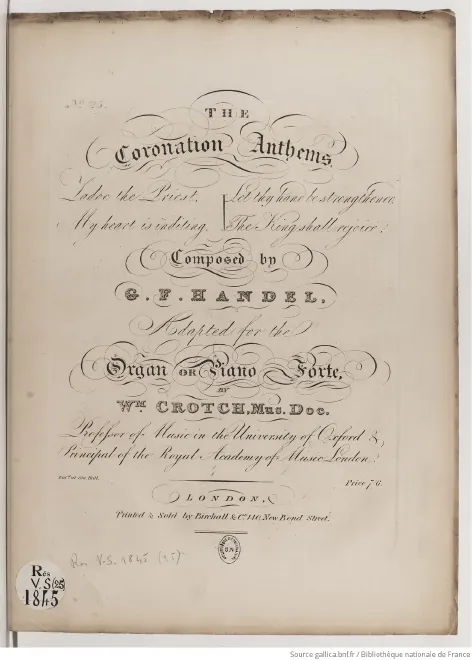 THE
Coronation Anthems,
Zadoc the Priest. Let thy hand be strengthened.
My heart is inditing. The King shall rejoice.
Composed by
G. F. HANDEL,
Adapted for the
Organ OR Piano Forte,
BY
WM. CROTCH, Mus. Doc.
Professor of Music in the University of Oxford &
Principal of the Royal Academy of Music London.
Ent.d at Sta. Hall. Price 7/6.
LONDON,
Printed & Sold by Birchall & Co. 140, New Bond Street.
Res V.S. 1845 (25)
Rés
V. S (25)
1845
Source gallica.bnf.fr / Bibliothèque nationale de France